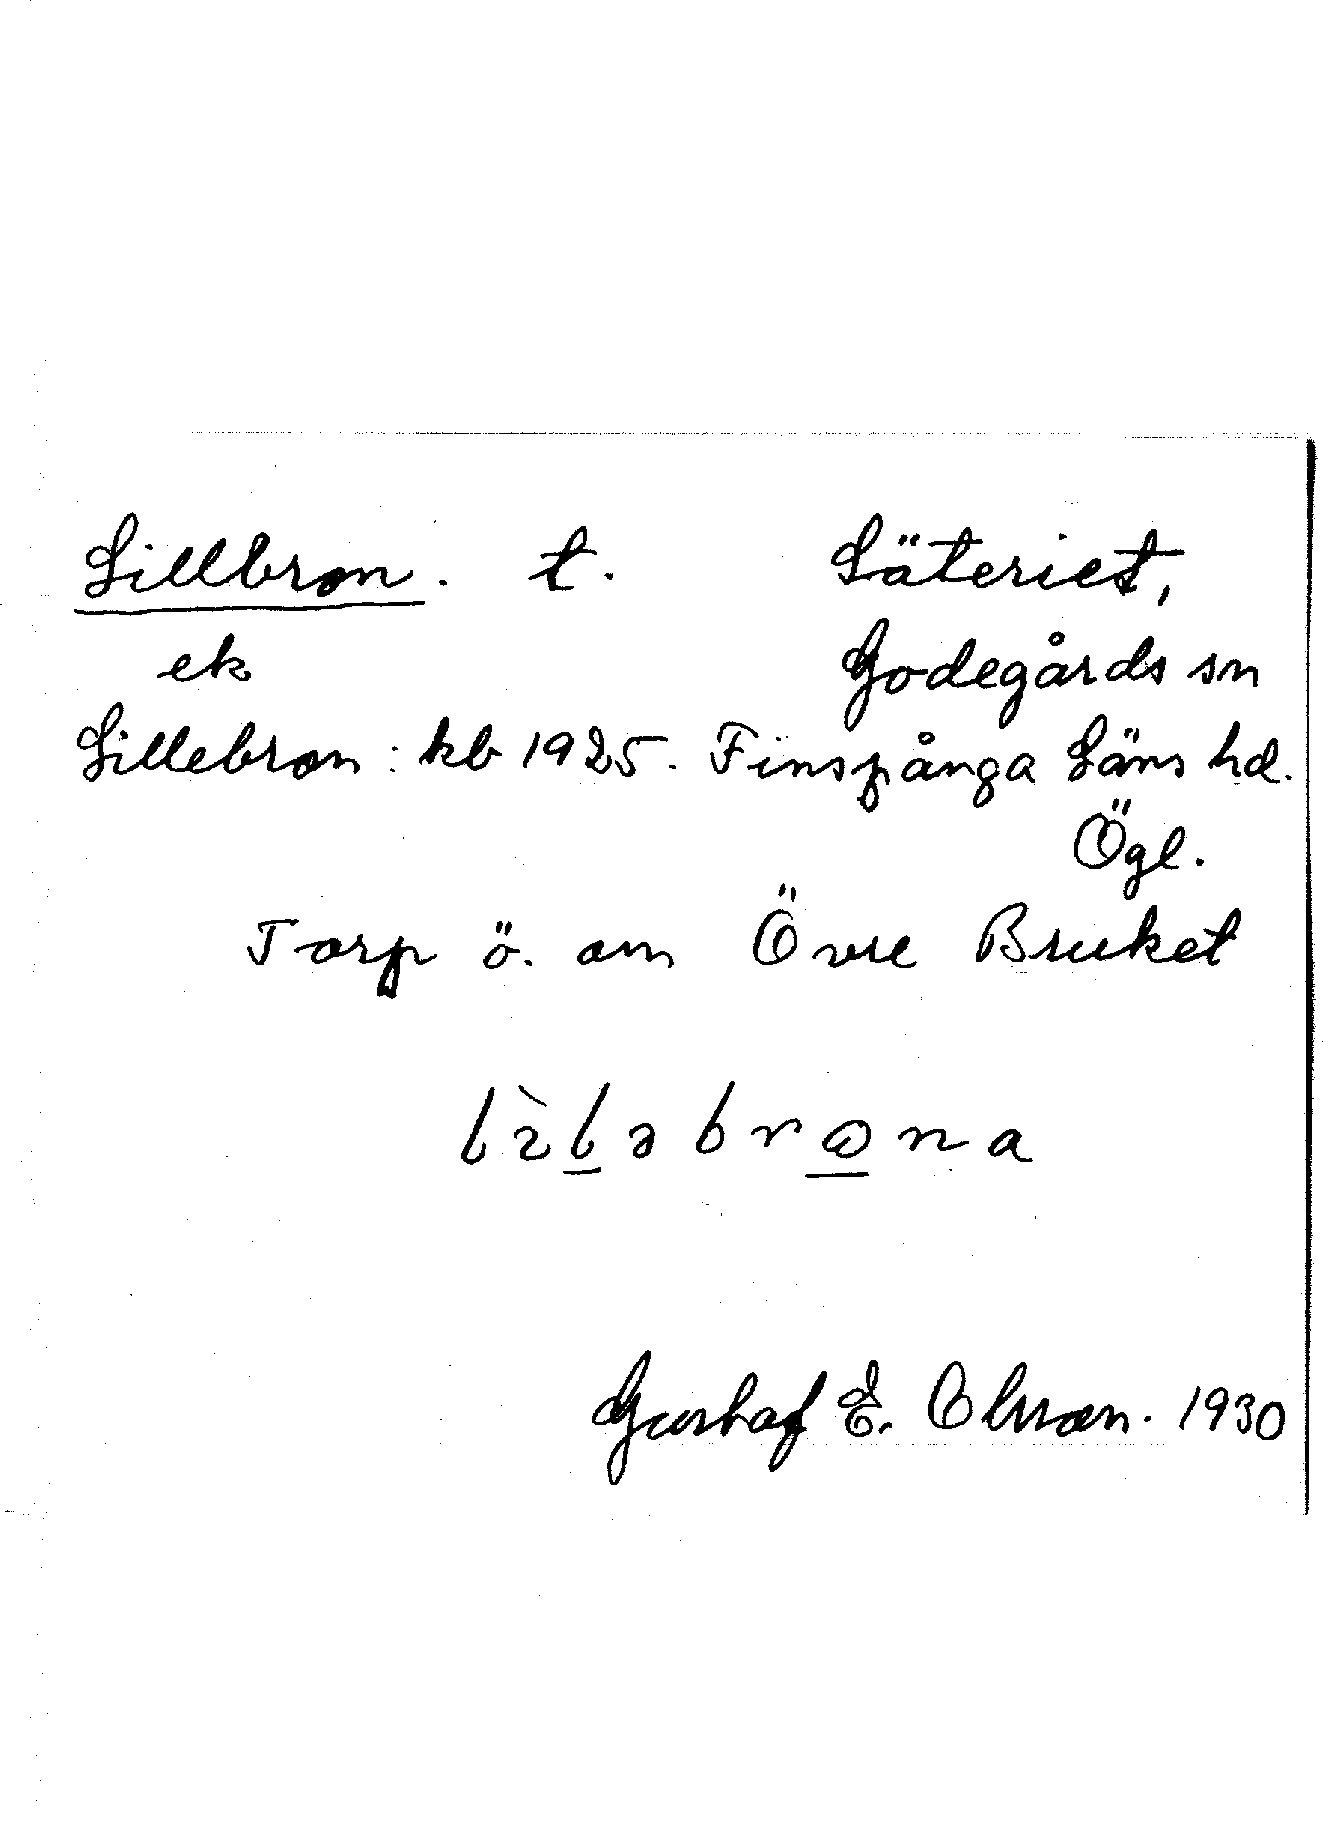 Lillbron. t. Säteriet,
ek Godegårds sn
Lillebron: kb 1925. Finspånga Läns hd.
Ögl.
Torp ö. om Övre Bruket
lìlǝbrona
Gustaf E. Olsson. 1930